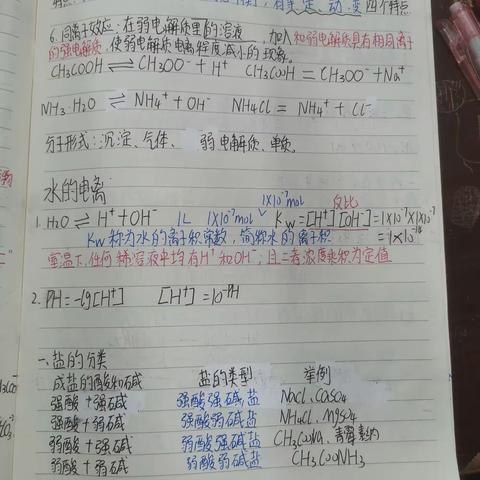 四个特点
6.同离子效应:在弱电解质里的溶液 加入和弱电解质具有相同离子
的强电解质,使弱电解质电离程度减小的现象。
CH₃COOH ⇌ CH₃OO⁻ + H⁺ CH₃COOH = CH₃OO⁻ + Na⁺
NH₃·H₂O ⇌ NH₄⁺ + OH⁻ NH₄Cl = NH₄⁺ + Cl⁻
分子形式:沉淀、气体、 弱电解质、单质。
水的电离
1×10⁻⁷mol 反比
1. H₂O ⇌ H⁺ + OH⁻ 1L 1×10⁻⁷mol Kw = [H⁺][OH⁻] = 1×10⁻⁷×1×10⁻⁷
Kw称为水的离子积常数,简称水的离子积 = 1×10⁻¹⁴
室温下,任何稀溶液中均有H⁺和OH⁻,且二者浓度乘积为定值
2. PH = -lg[H⁺] [H⁺] = 10⁻ᴾᴴ
一、盐的分类
成盐的酸和碱 盐的类型 举例
强酸 + 强碱 强酸强碱盐 NaCl、CaSO₄
强酸 + 弱碱 强酸弱碱盐 NH₄Cl、MgSO₄
弱酸 + 强碱 弱酸强碱盐 CH₃COONa、青霉素钠
弱酸 + 弱碱 弱酸弱碱盐 CH₃COONH₃